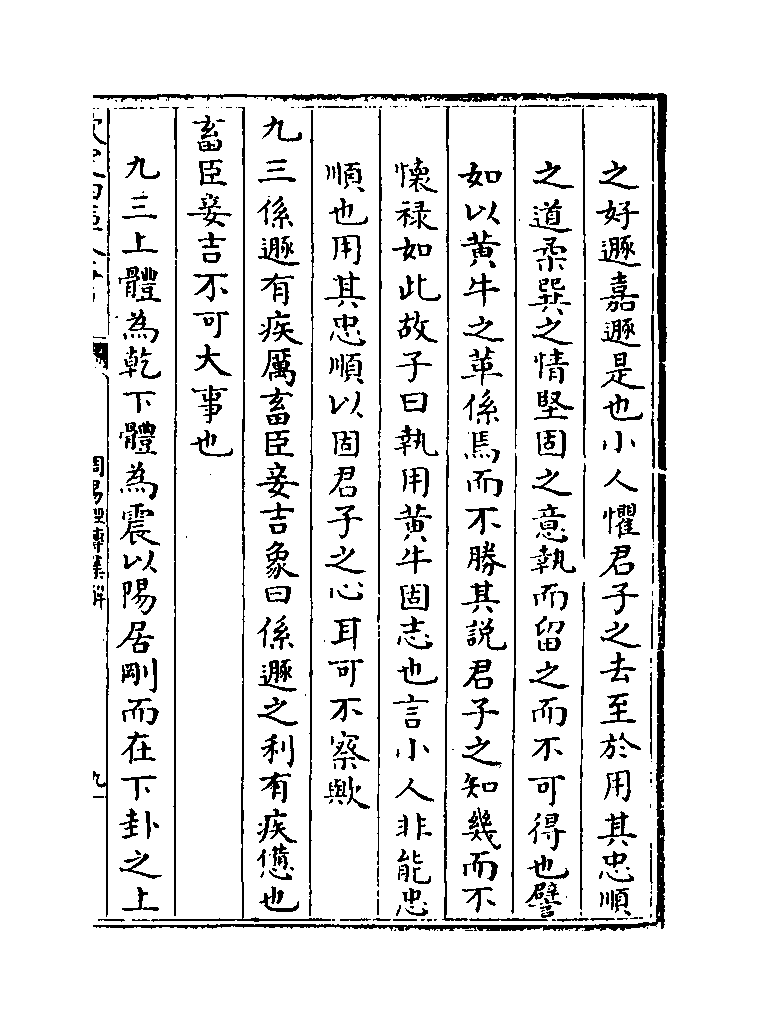 之好遯嘉遯是也小人懼君子之去至於用其忠順
之道柔巽之情堅固之意執而留之而不可得也譬
如以黄牛之革係馬而不勝其説君子之知幾而不
懷禄如此故子曰執用黄牛固志也言小人非能忠
順也用其忠順以固君子之心耳可不察歟
九三係遯有疾厲畜臣妾吉象曰係遯之利有疾憊也
畜臣妾吉不可大事也
九三上體為乾下體為震以陽居剛而在下卦之上
周易經傳集解
九